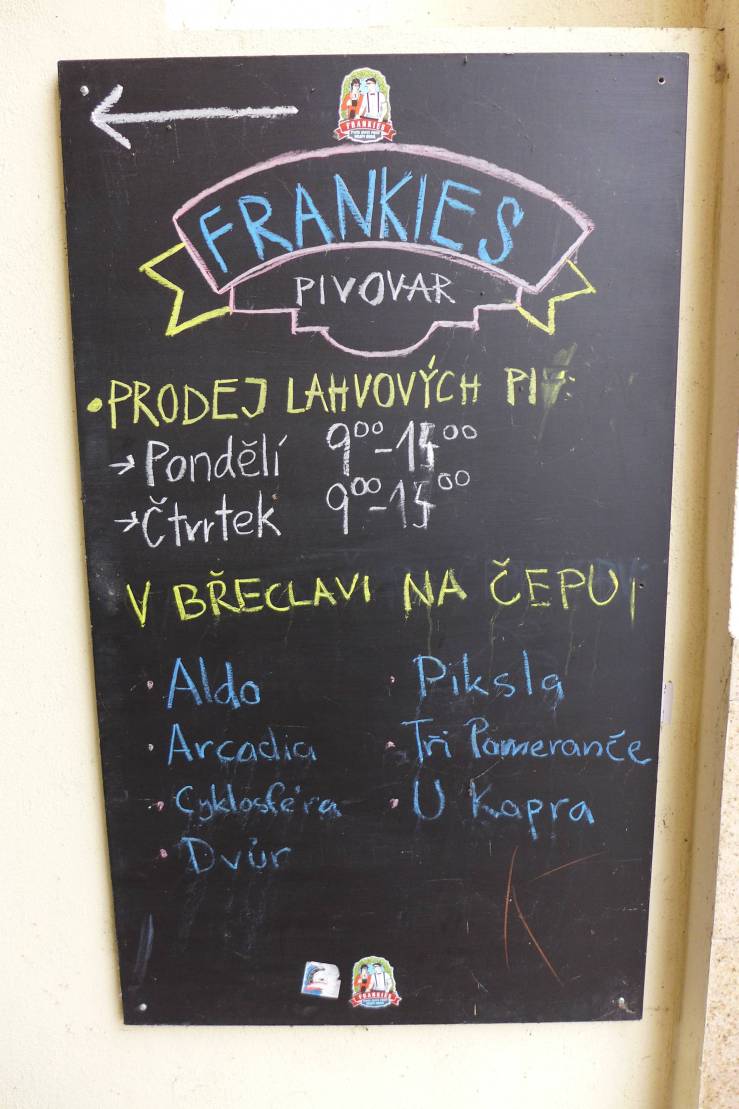 FRANKIES
FRANKIES
PIVOVAR
• PRODEJ LAHVOVÝCH PIV:
→ Pondělí 9⁰⁰-15⁰⁰
→ Čtvrtek 9⁰⁰-15⁰⁰
V BŘECLAVI NA ČEPU
• Aldo
• Arcadia
• Cyklosféra
• Dvůr
• Piksla
• Tři Pomeranče
• U Kapra
FRANKIES